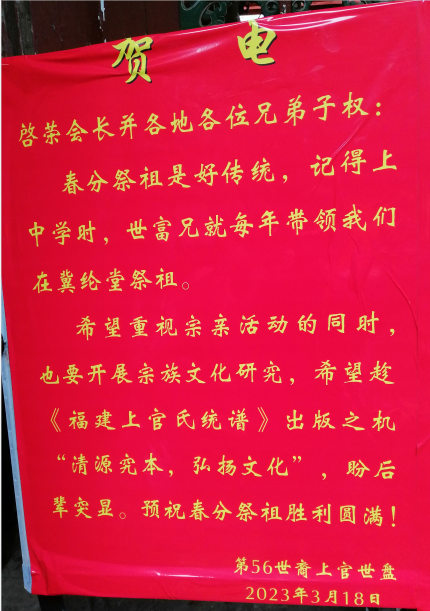 贺电
啓荣会长并各地各位兄弟子权：
春分祭祖是好传统，记得上
中学时，世富兄就每年带领我们
在冀纶堂祭祖。
希望重视宗亲活动的同时，
也要开展宗族文化研究，希望趁
《福建上官氏统谱》出版之机
“清源究本，弘扬文化”，盼后
辈突显。预祝春分祭祖胜利圆满！
第56世裔上官世盘
2023年3月18日